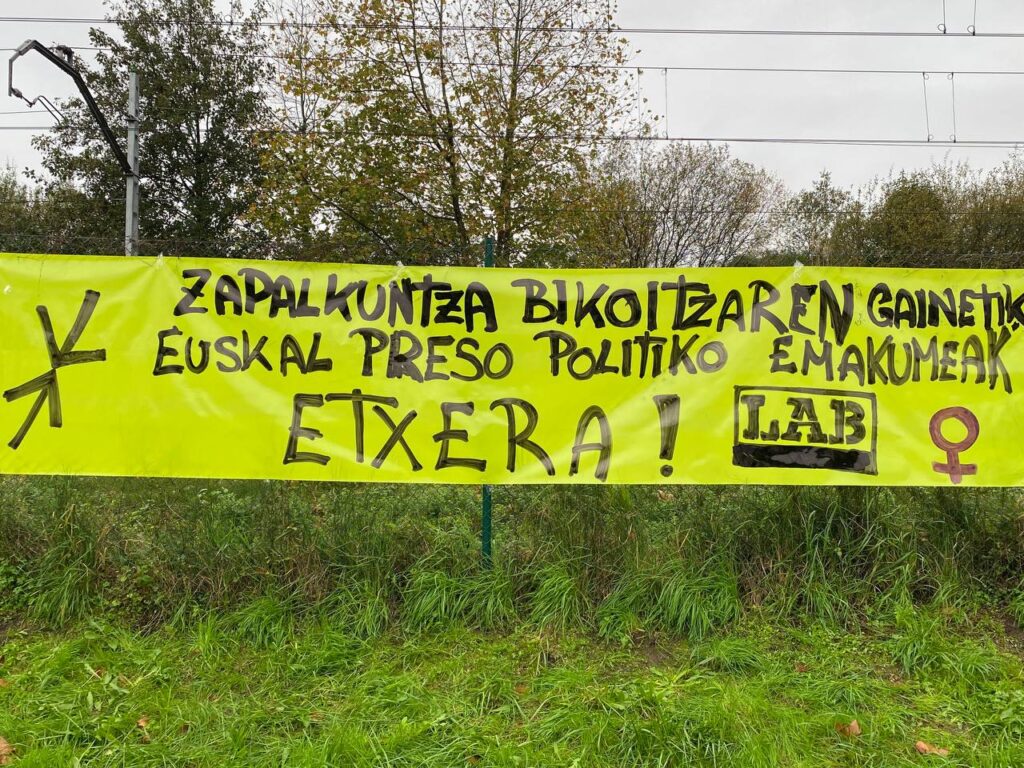 ZAPALKUNTZA BIKOITZAREN GAINETIK
EUSKAL PRESO POLITIKO EMAKUMEAK
ETXERA!
LAB